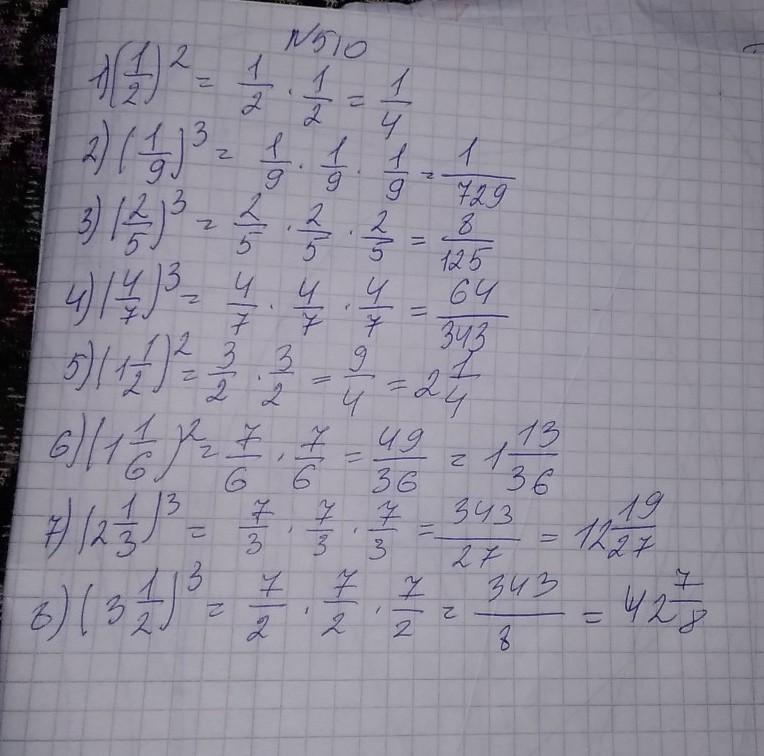 N510
1) (1/2)^2 = 1/2 · 1/2 = 1/4
2) (1/9)^3 = 1/9 · 1/9 · 1/9 = 1/729
3) (2/5)^3 = 2/5 · 2/5 · 2/5 = 8/125
4) (4/7)^3 = 4/7 · 4/7 · 4/7 = 64/343
5) (1 1/2)^2 = 3/2 · 3/2 = 9/4 = 2 1/4
6) (1 1/6)^2 = 7/6 · 7/6 = 49/36 = 1 13/36
7) (2 1/3)^3 = 7/3 · 7/3 · 7/3 = 343/27 = 12 19/27
8) (3 1/2)^3 = 7/2 · 7/2 · 7/2 = 343/8 = 42 7/8